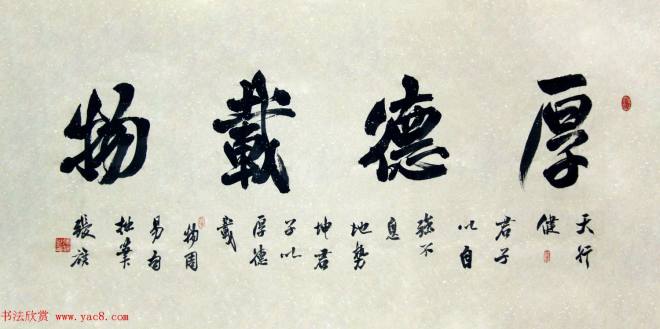 厚德載物
天行
健
君子
以自
強不
息
地勢
坤君
子以
厚德
載
物周
易句
书法欣赏 www.yac8.com